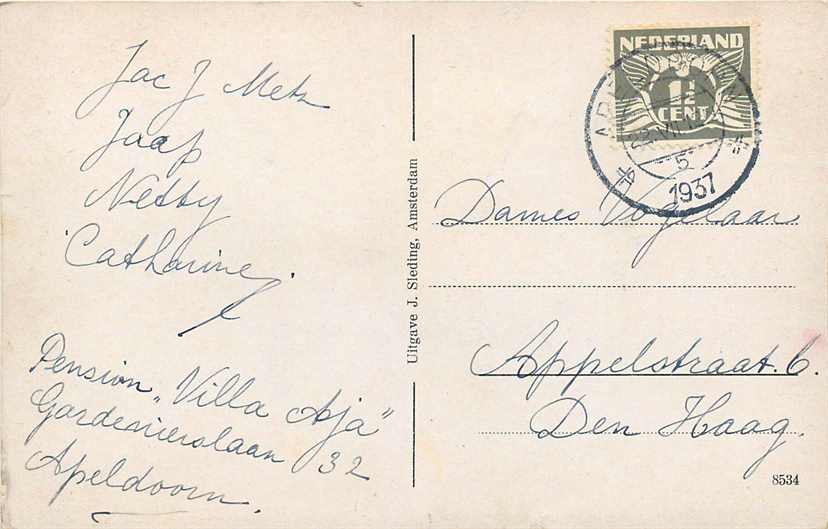 Jac J Metz
Jaap
Netty
Catharine.
Pension "Villa Aja"
Gardenierslaan 32
Apeldoorn.
Uitgave J. Sleding, Amsterdam
NEDERLAND
1½
CENT
APELDOORN
22.VII
5
1937
Dames Vogelaar
Appelstraat 6.
Den Haag.
8534